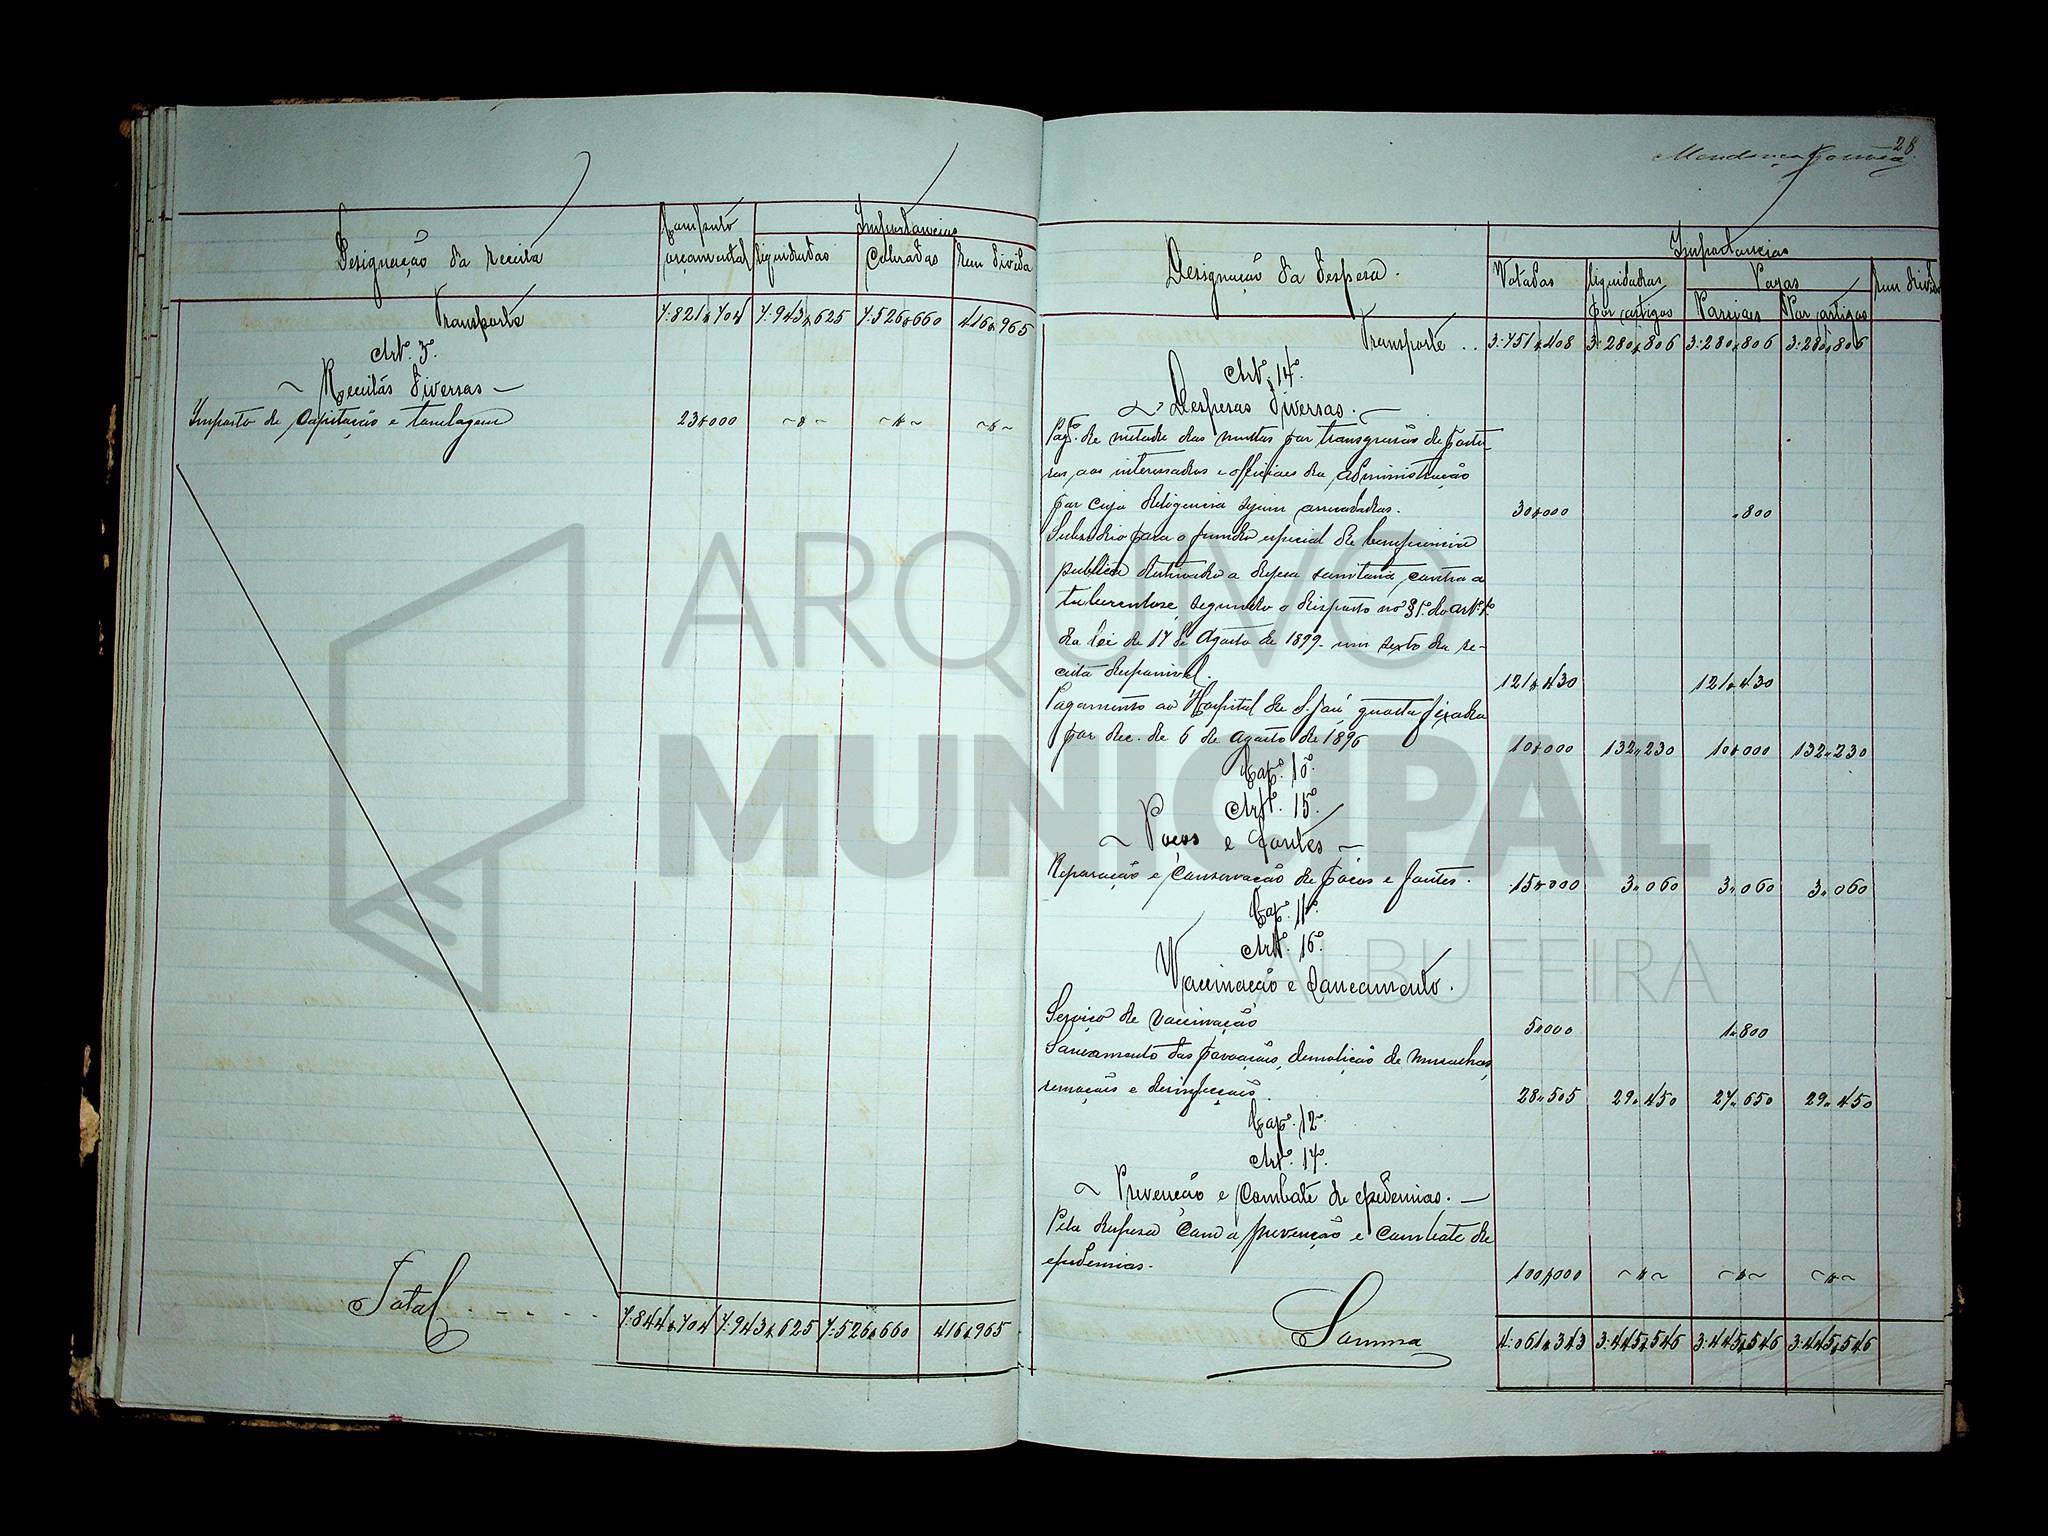 Designação da receita
Computo orçamental
Importancias
liquidadas
Cobradas
Em divida
Transporte 7:821$704 7:943$625 7:526$660 416$965
Artº. 3º.
Receitas diversas
Imposto de capitação e tonelagem 23$000 ~$~ ~$~ ~$~
Total 7:844$704 7:943$625 7:526$660 416$965
28
Mendonça Gouveia
Designação da despesa.
Importancias
Votadas
liquidadas por artigos
Pagas
Parciaes
Por artigos
Em divida
Transporte .. 3:751$408 3:280$806 3:280$806 3:280$806
Artº. 14º.
Despesas diversas.
Pagº. de metade das multas por transgressão de postu-
ras, aos interessados e officiaes da administração
por cuja deligencia sejam arrecadadas. 30$000 $800
Subsidio para o fundo especial de beneficencia
publica destinado a defesa sanitaria contra a
tuberculose, segundo o disposto no § 1º. do artº. 1º
da lei de 17 de Agosto de 1899 - um sexto da re-
ceita disponivel. 121$430 121$430
Pagamento ao Hospital de S. José, quota fixada
por dec. de 6 de agosto de 1896 10$000 132$230 10$000 132$230
Capº. 10º.
Artº. 15º.
Poços e fontes
Reparação e conservação de poços e fontes. 15$000 3$060 3$060 3$060
Capº. 11º.
Artº. 16º.
Vaccinação e Saneamento.
Serviço de vaccinação 5$000 1$800
Saneamento das povoações, demolição de muralhas,
remoções e desinfecções. 28$505 29$450 27$650 29$450
Capº. 12º.
Artº. 17º.
Prevenção e Combate de epidemias.
Pela despesa com a prevenção e combate de
epidemias. 100$000 ~$~ ~$~ ~$~
Somma 4:061$343 3:445$546 3:445$546 3:445$546
ARQUIVO
MUNICIPAL
ALBUFEIRA